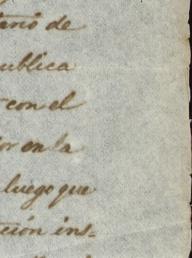 tario de
ublica
con el
or en la
luego que
ción ins-